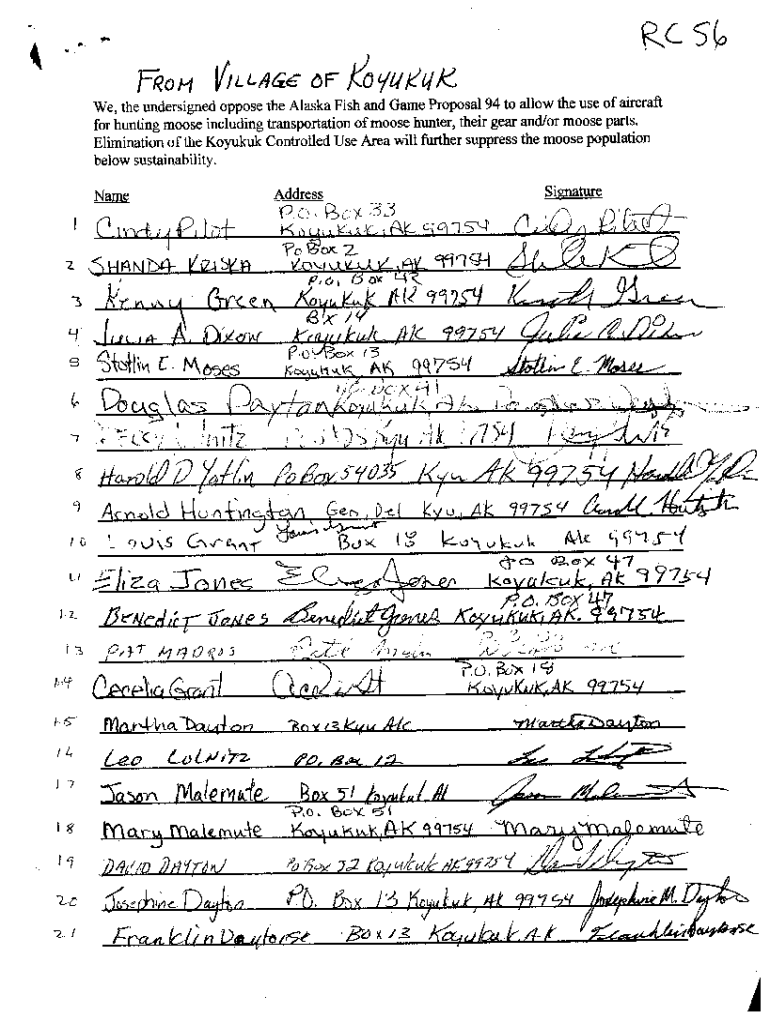 RC 56
FROM VILLAGE OF KOYUKUK
We, the undersigned oppose the Alaska Fish and Game Proposal 94 to allow the use of aircraft
for hunting moose including transportation of moose hunter, their gear and/or moose parts.
Elimination of the Koyukuk Controlled Use Area will further suppress the moose population
below sustainability.
Name Address Signature
P.O. Box 33
1 Cindy Pilot Koyukuk, AK 99754 Cindy Pilot
Po Box 2
2 SHANDA KRISKA KOYUKUK, AK 99754
P.O. Box 42
3 Kenny Green Koyukuk AK 99754 Green
Bx 14
4 Julia A. Dixon Koyukuk AK 99754 Julia A. Dixon
P.O. Box 13
5 Stotlin E. Moses Koyukuk AK 99754 Stotlin E. Moses
Box 41
6 Douglas Dayton Koyukuk, AK
7
8 Harold D Yatlin Po Box 54035 Kyu AK 99754
9 Arnold Huntington Gen, Del Kyu, AK 99754
10 Louis Grant Louis Grant Box 18 Koyukuk AK 99754
PO BOX 47
11 Eliza Jones Eliza Jones Koyukuk, AK 99754
P.O. Box 47
12 BENEDICT JONES Benedict Jones KOYUKUK, AK. 99754
13 PAT MADROS
P.O. Box 18
14 Cecelia Grant KOYUKUK, AK 99754
15 Martha Dayton Box 13 Kyu AK Martha Dayton
16 Leo LOLNITZ P.O. Box 12
17 Jason Malemute Box 51 Koyukuk AK
P.O. Box 51
18 Mary Malemute Koyukuk, AK 99754 Mary Malemute
19 DAVID DAYTON Po Box 32 Koyukuk AK 99754
20 Josephine Dayton P.O. Box 13 Koyukuk, AK 99754 Josephine M. Dayton
21 Franklin Box 13 Koyukuk AK Franklin